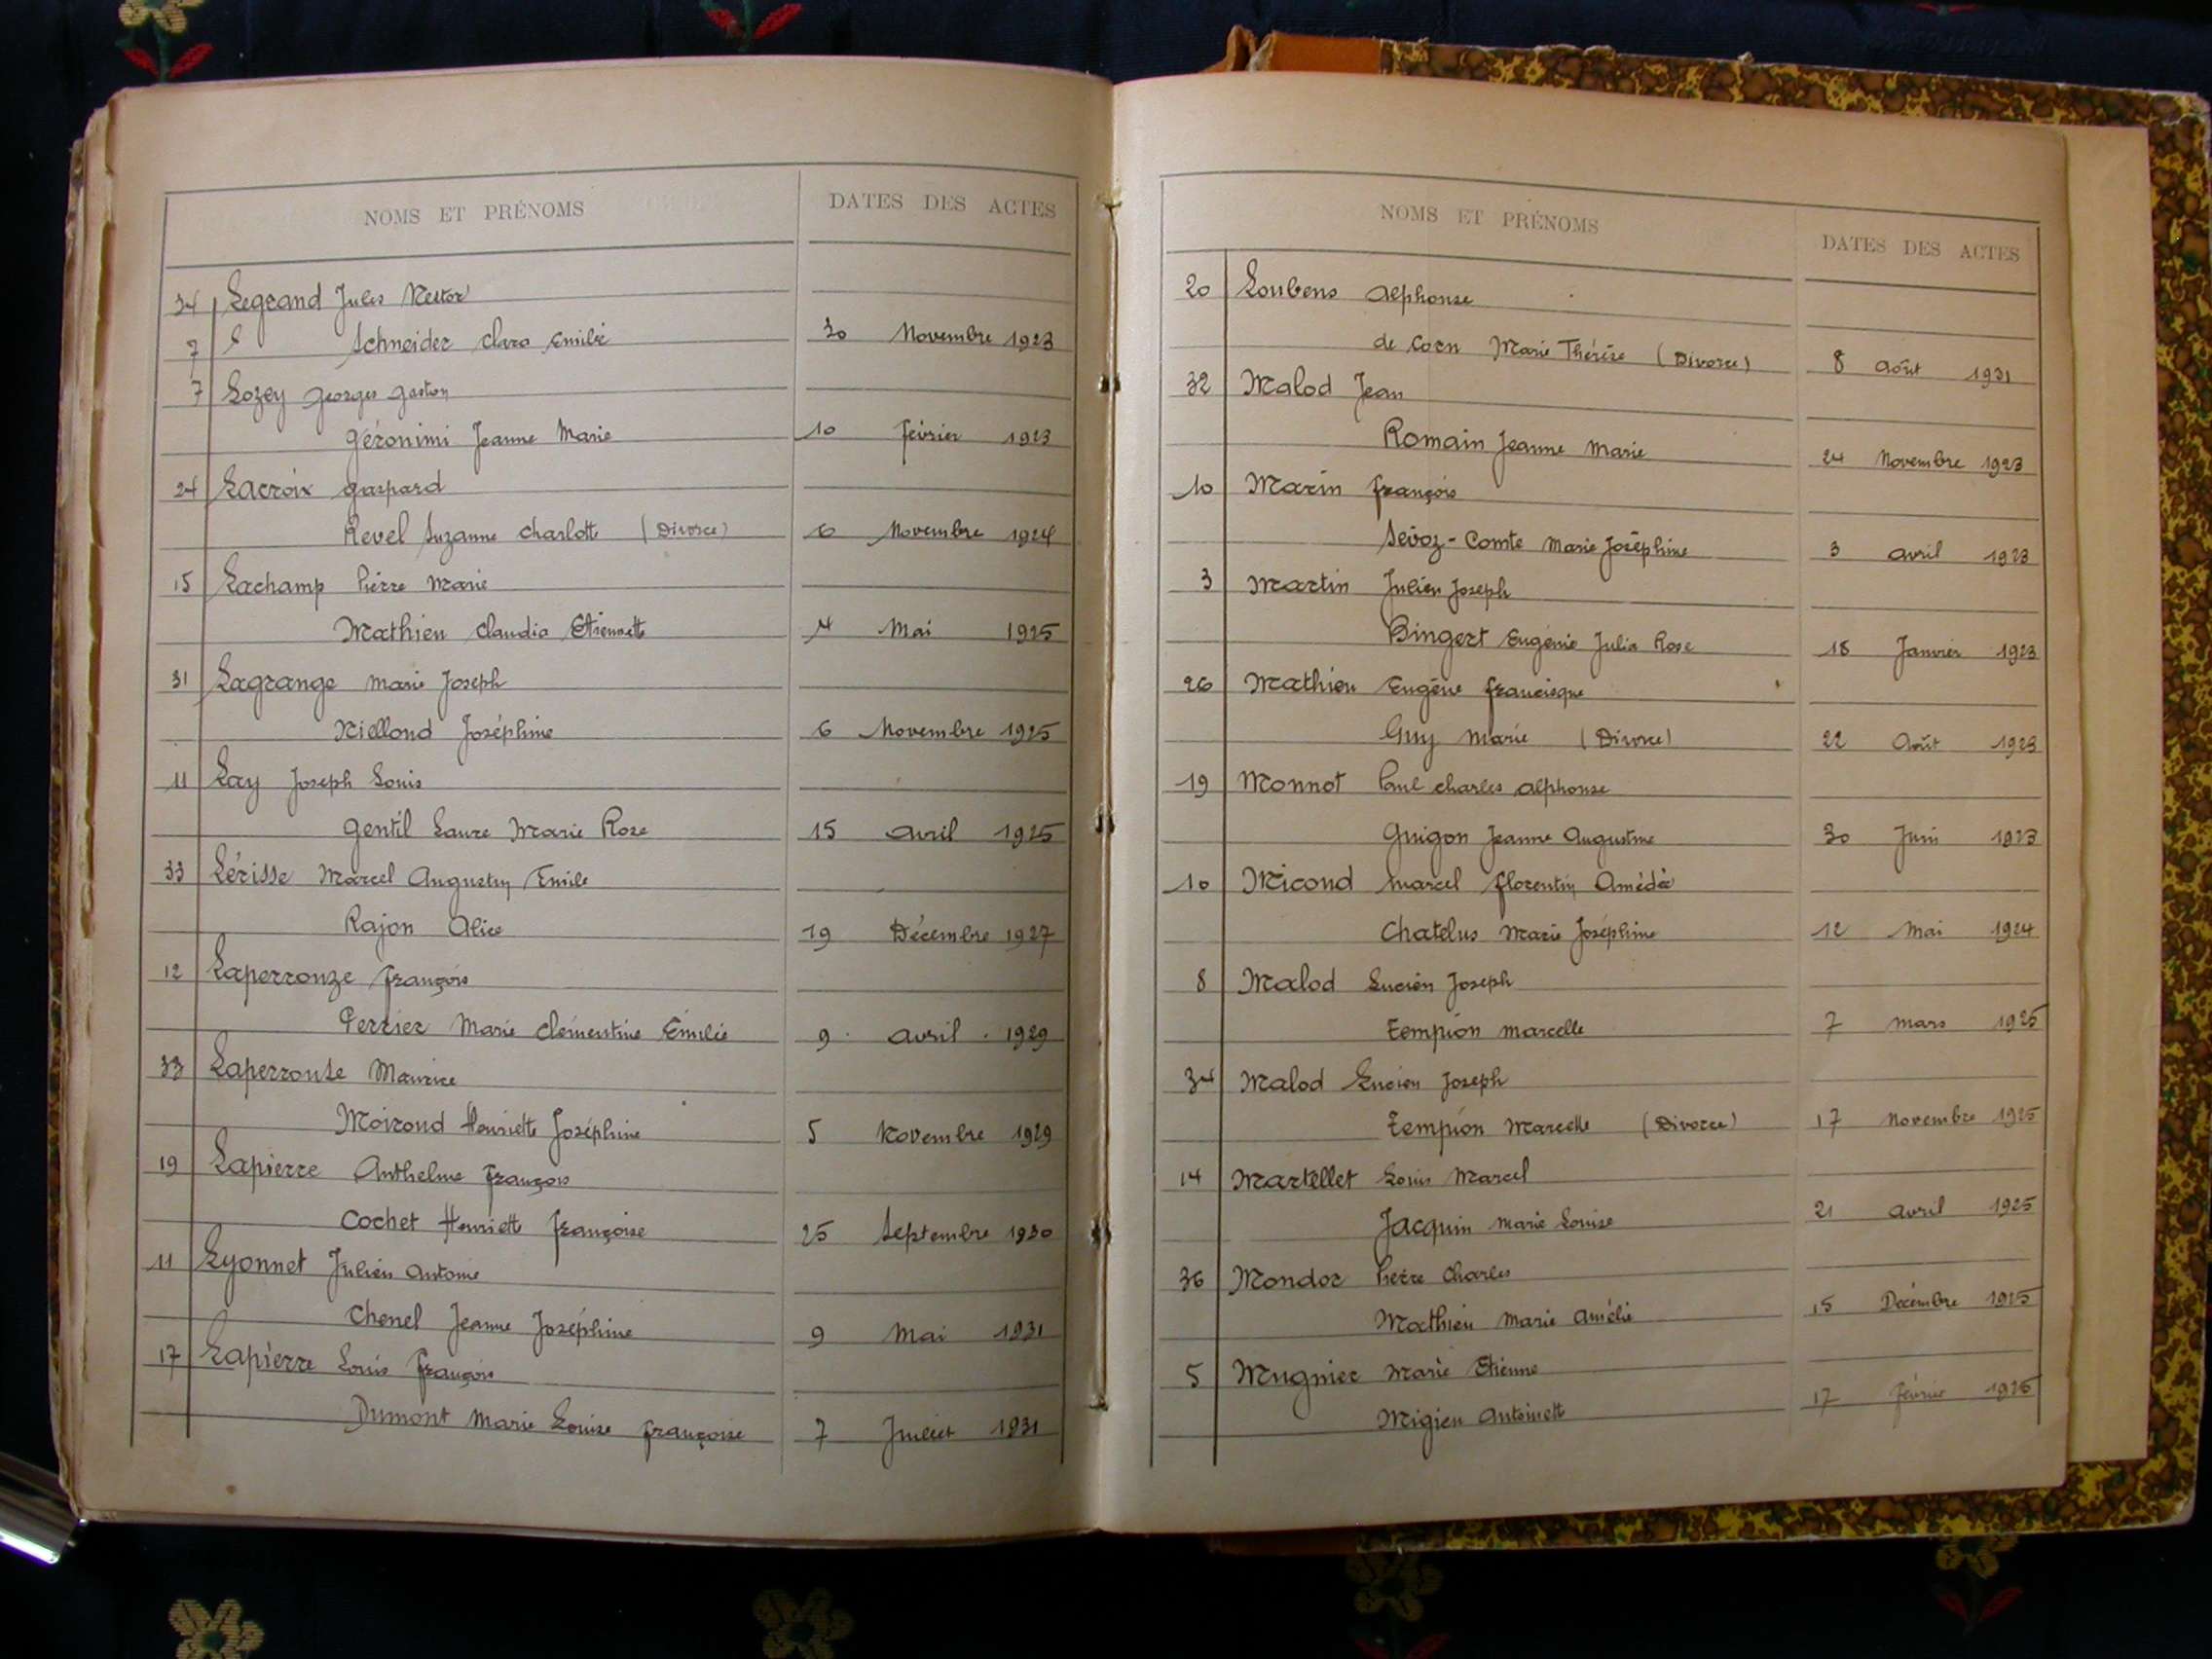 NOMS ET PRÉNOMS DATES DES ACTES
34 Legrand Jules Nestor
7 Schneider Clara Emilie 30 Novembre 1923
7 Lozey Georges Gaston
Géronimi Jeanne Marie 10 Février 1923
24 Lacroix Gaspard
Revel Suzanne Charlotte (Divorce) 6 Novembre 1924
15 Lachamp Pierre Marie
Mathieu Claudia Etiennette 4 Mai 1925
31 Lagrange Marie Joseph
Niellond Joséphine 6 Novembre 1925
11 Lay Joseph Louis
Gentil Laure Marie Rose 15 Avril 1925
33 Lérisse Marcel Augustin Emile
Rajon Alice 19 Décembre 1927
12 Laperrouze François
Perrier Marie Clémentine Emilie 9 Avril 1929
33 Laperrouse Maurice
Moiroud Henriette Joséphine 5 Novembre 1929
19 Lapierre Anthelme François
Cochet Henriette Françoise 25 Septembre 1930
11 Lyonnet Julien Antoine
Chenel Jeanne Joséphine 9 Mai 1931
17 Lapierre Louis François
Dumont Marie Louise Françoise 7 Juillet 1931
NOMS ET PRÉNOMS DATES DES ACTES
20 Loubens Alphonse
de Coen Marie Thérèse (Divorce) 8 Août 1931
32 Malod Jean
Romain Jeanne Marie 24 Novembre 1923
10 Marin François
Sévoz-Comte Marie Joséphine 3 Avril 1923
3 Martin Julien Joseph
Bingert Eugénie Julia Rose 18 Janvier 1923
26 Mathieu Eugène Francisque
Guy Marie (Divorce) 22 Août 1923
19 Monnot Paul Charles Alphonse
Guigon Jeanne Augustine 30 Juin 1923
10 Micoud Marcel Florentin Amédée
Chatelus Marie Joséphine 12 Mai 1924
8 Malod Lucien Joseph
Tempion Marcelle 7 Mars 1925
34 Malod Lucien Joseph
Tempion Marcelle (Divorce) 17 Novembre 1925
14 Martellet Louis Marcel
Jacquin Marie Louise 21 Avril 1925
36 Mondor Pierre Charles
Mathieu Marie Amélie 15 Décembre 1925
5 Mugnier Marie Etienne
Migieu Antoinette 17 Février 1926